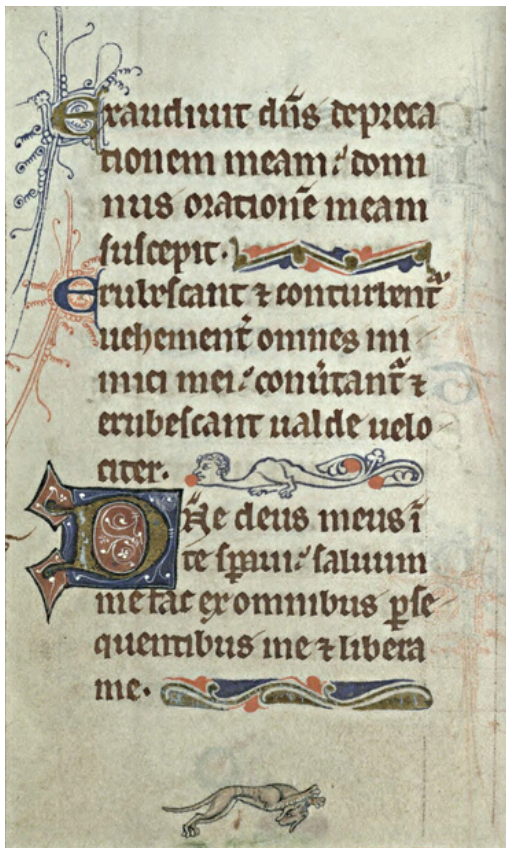 Exaudiuit dn̄s depreca
tionem meam: domi
nus orationē meam
suscepit.
Erubescant ⁊ conturbent᷑
uehement᷑ omnes ini
mici mei: conũtant᷑ ⁊
erubescant ualde uelo
citer.
Dñe deus meus ī
te sp̄aui: saluum
me fac ex omnibus ꝑse
quentibus me ⁊ libera
me.